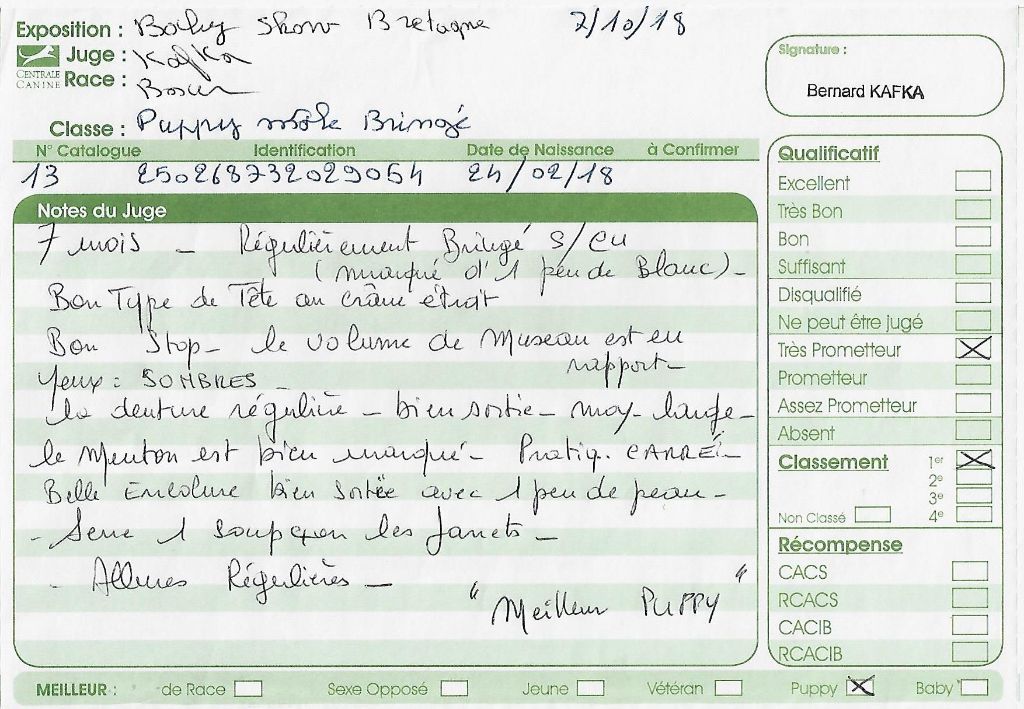 Exposition : Boxey Show Bretagne 7/10/18
Juge : Kafka
CENTRALE CANINE
Race : Boxer
Classe : Puppy mâle Bringé
N° Catalogue Identification Date de Naissance à Confirmer
13 250268732029054 24/02/18
Signature :
Bernard KAFKA
Notes du Juge
7 mois - Régulièrement Bringé S/CU
(marqué d'1 peu de Blanc) -
Bon Type de Tête au crâne étroit
Bon Stop - le volume de Museau est en
rapport -
Yeux : SOMBRES -
la denture régulière - bien sortie - moy. large -
le Menton est bien marqué - Pratiq. CARRÉ -
Belle Encolure bien sortée avec 1 peu de peau -
- Serre 1 soupçon les Jarrets -
- Allures Régulières -
" Meilleur PUPPY "
Qualificatif
Excellent
Très Bon
Bon
Suffisant
Disqualifié
Ne peut être jugé
Très Prometteur X
Prometteur
Assez Prometteur
Absent
Classement 1er X
2e
3e
Non Classé 4e
Récompense
CACS
RCACS
CACIB
RCACIB
MEILLEUR : de Race Sexe Opposé Jeune Vétéran Puppy X Baby